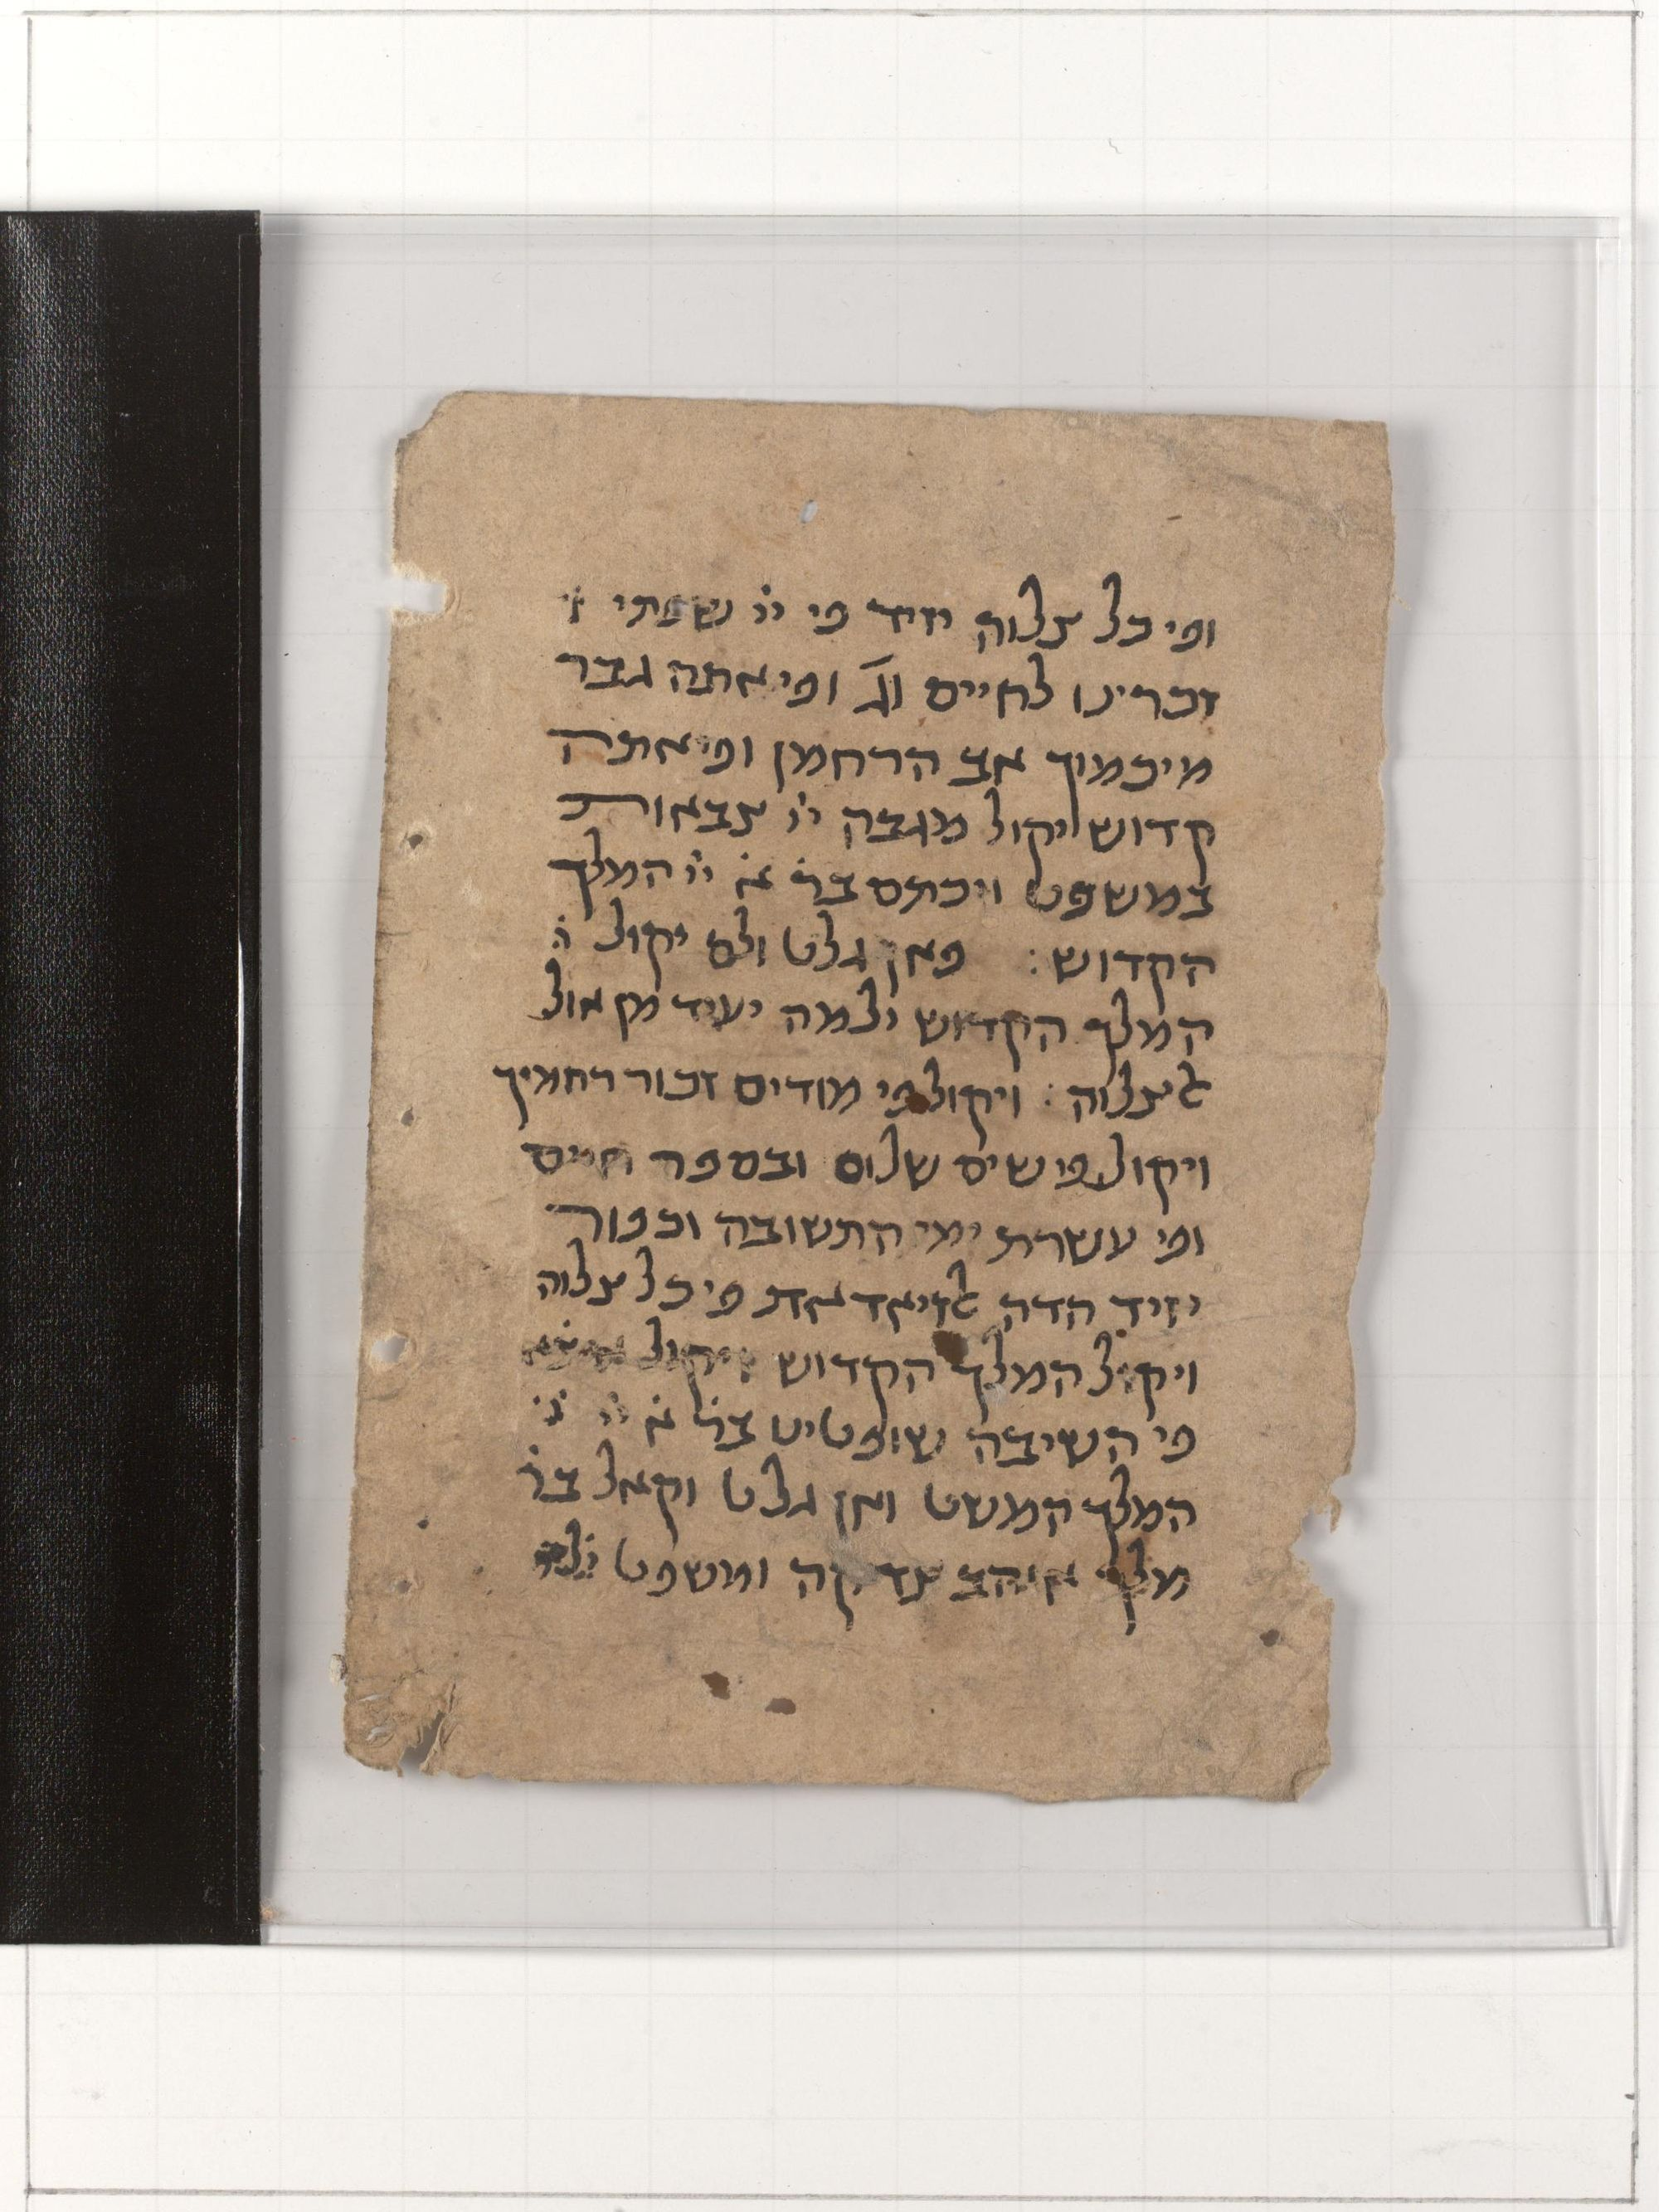 ופי כל צלוה יזיד פי ייי שפתי ז
זכרינו לחיים וג ופי אתה גבר
מיכמוך אב הרחמן ופי אתה
קדוש יקול מגבה ייי צבאות
במשפט ויכתם בר א ייי המלך
הקדוש : פאן גלט ולם יקול ה
המלך הקדוש ילזמה יעיד מן אול
אלצלוה : ויקול פי מודים זכור רחמיך
ויקול פי שים שלום ובספר חיים
ופי עשרת ימי התשובה וכפור
יזיד הדה אלזיאדאת פי כל צלוה
ויקול המלך הקדוש ויקול איצא
פי השיבה שופטינו בר א ייי
המלך המשפט ואן גלט וקאל בר
מלך אוהב צדקה ומשפט